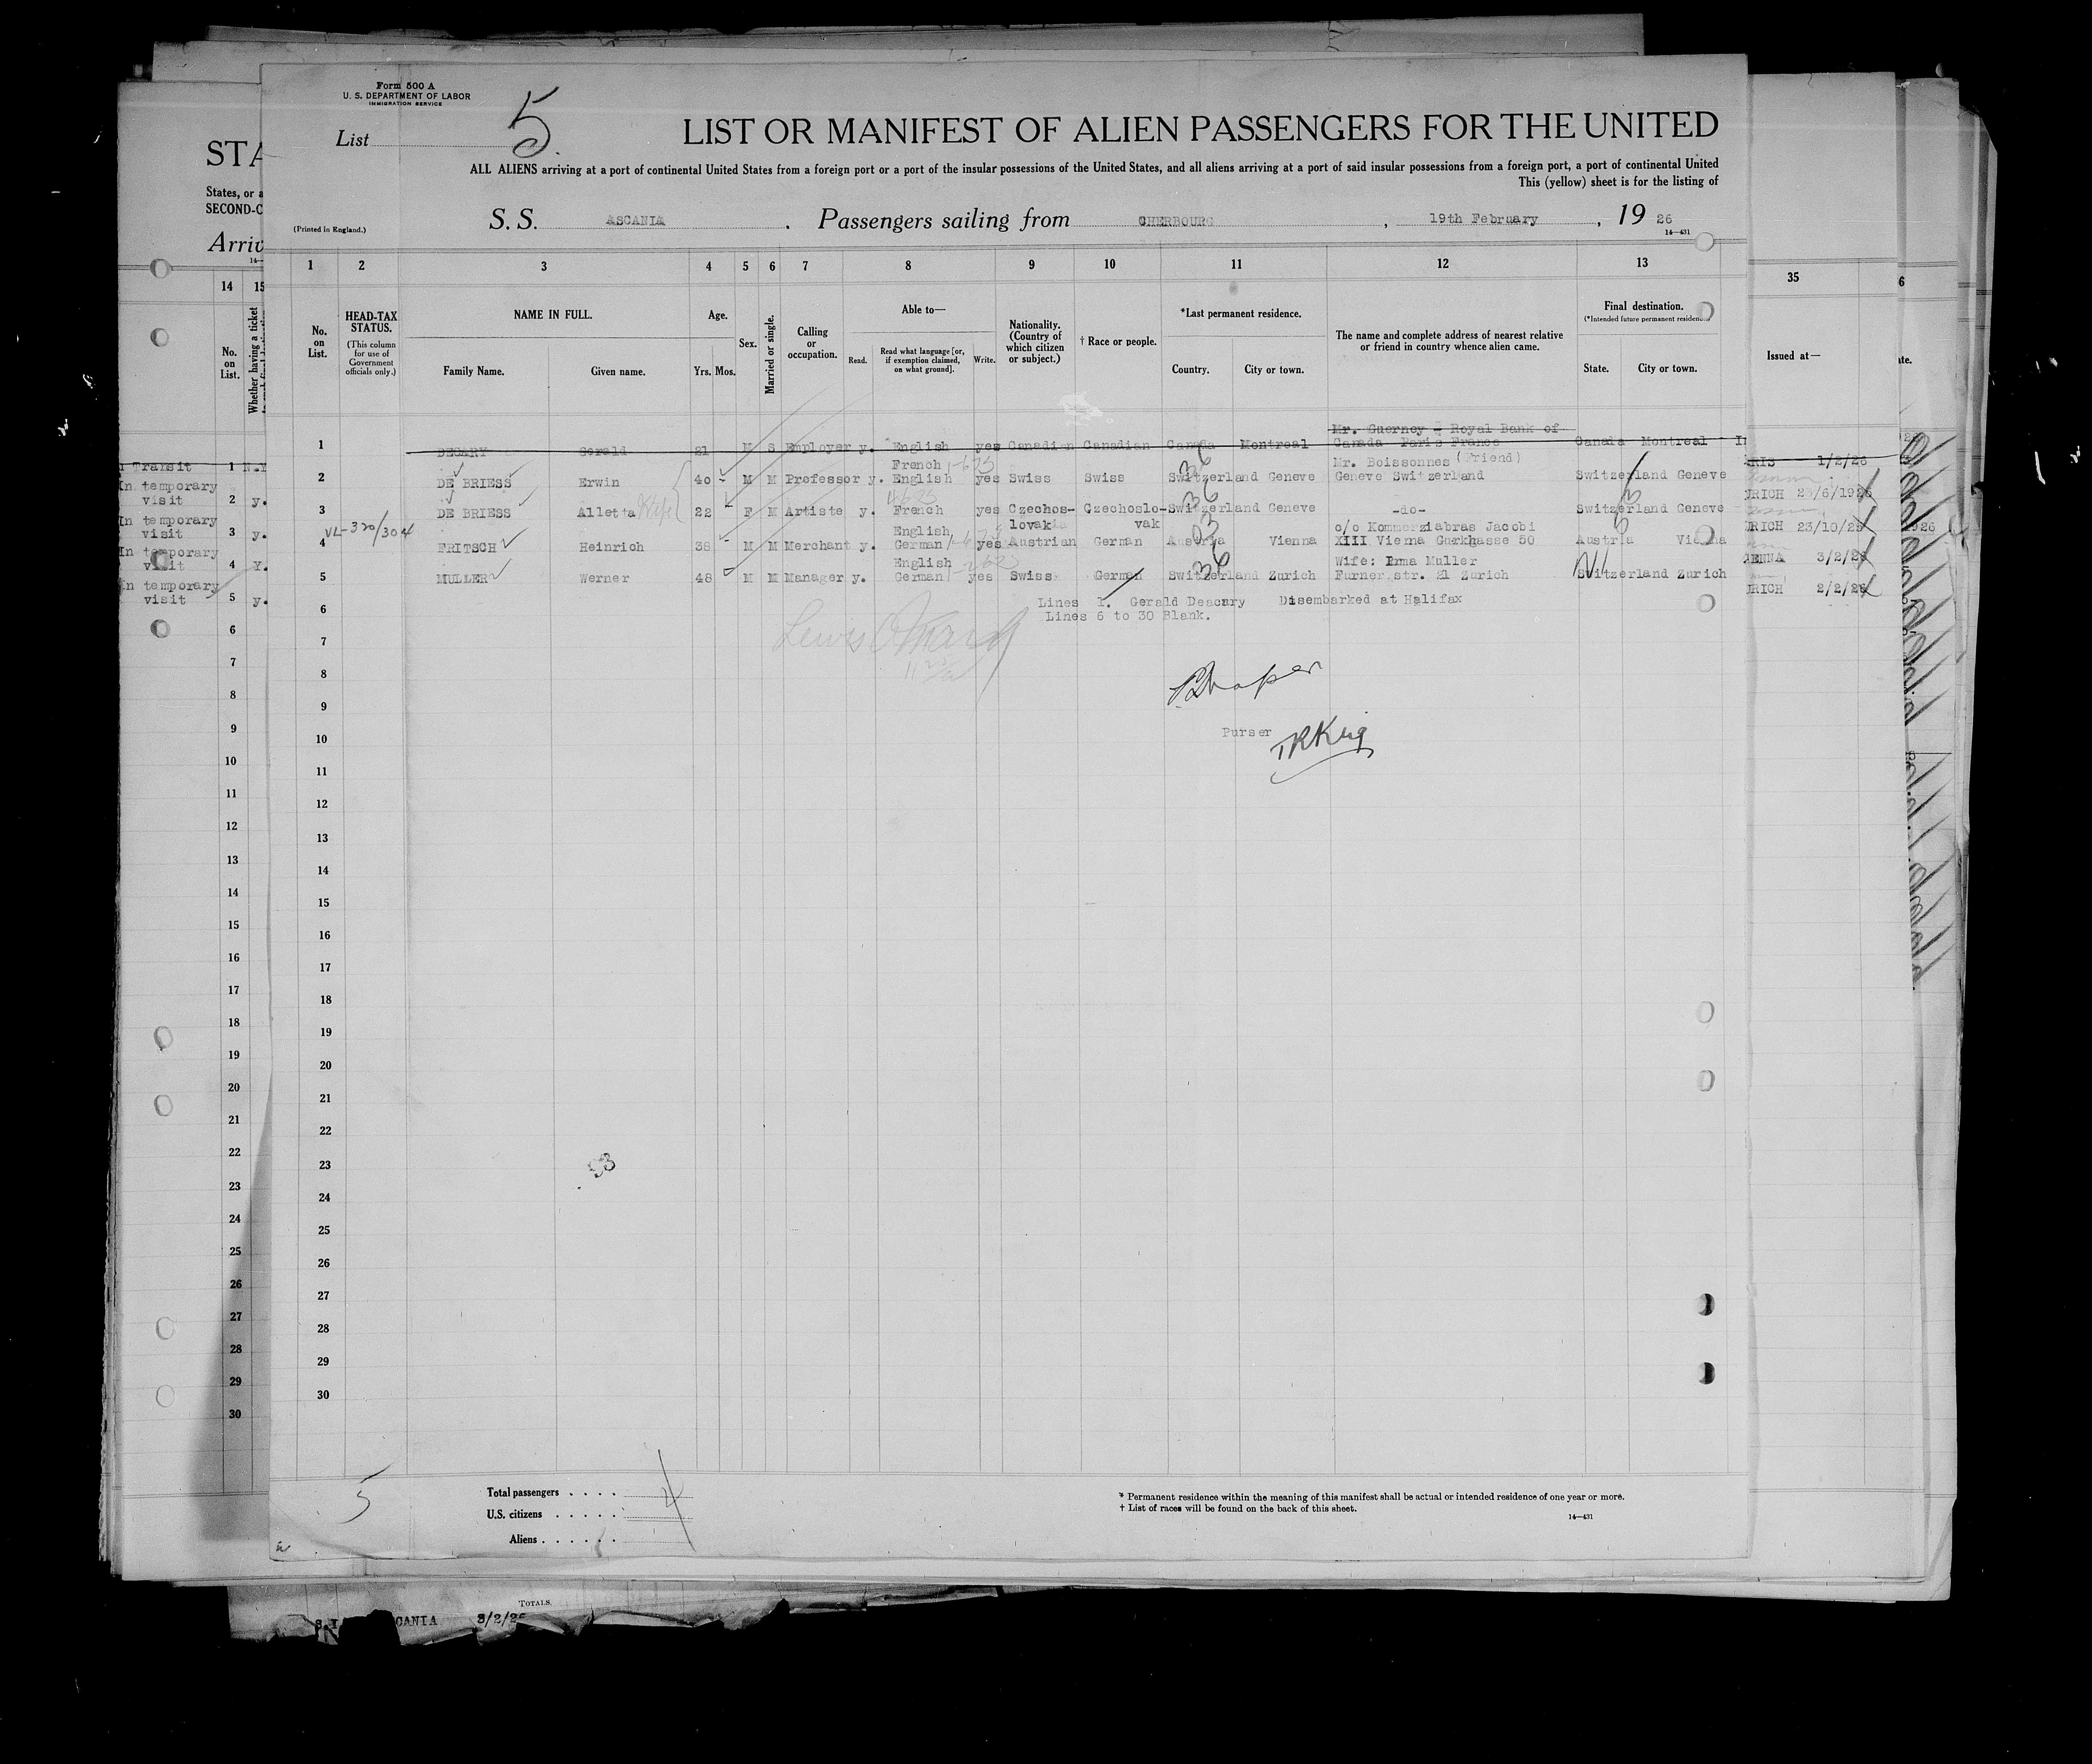 Form 500 A
U. S. DEPARTMENT OF LABOR
IMMIGRATION SERVICE
List 5
LIST OR MANIFEST OF ALIEN PASSENGERS FOR THE UNITED
ALL ALIENS arriving at a port of continental United States from a foreign port or a port of the insular possessions of the United States, and all aliens arriving at a port of said insular possessions from a foreign port, a port of continental United
This (yellow) sheet is for the listing of
(Printed in England.)
S. S. ASCANIA . Passengers sailing from CHERBOURG , 19th February , 19 26
14—431
STA
States, or a
SECOND-C
Arriv
14—
1 2 3 4 5 6 7 8 9 10 11 12 13
14 15
35
No. on List.
HEAD-TAX STATUS.
(This column for use of Government officials only.)
NAME IN FULL.
Family Name. Given name.
Age.
Yrs. Mos.
Sex.
Married or single.
Calling or occupation.
Able to—
Read. Read what language [or, if exemption claimed, on what ground]. Write.
Nationality. (Country of which citizen or subject.)
† Race or people.
*Last permanent residence.
Country. City or town.
The name and complete address of nearest relative or friend in country whence alien came.
Final destination.
(*Intended future permanent residence
State. City or town.
No. on List.
Whether having a ticket
Issued at—
Mr. Guerney - Royal Bank of
1 DECARY Gerald 21 M S Employer y. English yes Canadian Canadian Canada Montreal Canada Paris France Canada Montreal
French Mr. Boissonnes (Friend)
2 DE BRIESS Erwin 40 M M Professor y. English yes Swiss Swiss Switzerland Geneve Geneve Switzerland Switzerland Geneve
3 DE BRIESS Alletta Wife 22 F M Artiste y. French yes Czechos- Czechoslo- Switzerland Geneve -do- Switzerland Geneve
VL-320/304
English lovakia vak c/o Kommerziabras Jacobi
4 FRITSCH Heinrich 38 M M Merchant y. German yes Austrian German Austria Vienna XIII Vienna Gurkhasse 50 Austria Vienna
English Wife: Irma Muller
5 MULLER Werner 48 M M Manager y. German yes Swiss German Switzerland Zurich Furner str. 21 Zurich Switzerland Zurich
6 Lines 1. Gerald Deacary Disembarked at Halifax
Lines 6 to 30 Blank.
7
8
9
10 Purser
11
12
13
14
15
16
17
18
19
20
21
22
23
24
25
26
27
28
29
30
Transit 1 N.Y
In temporary visit 2 y.
In temporary visit 3 y.
In temporary visit 4 Y.
In temporary visit 5 y.
6
7
8
9
10
11
12
13
14
15
16
17
18
19
20
21
22
23
24
25
26
27
28
29
30
ARIS 1/2/26
URICH 23/6/1925
URICH 23/10/25
ENNA 3/2/26
URICH 2/2/26
93
5
Total passengers . . . . 4
U.S. citizens . . . . .
Aliens . . . . . .
* Permanent residence within the meaning of this manifest shall be actual or intended residence of one year or more.
† List of races will be found on the back of this sheet.
14—431
TOTALS.
CANIA 8/2/26